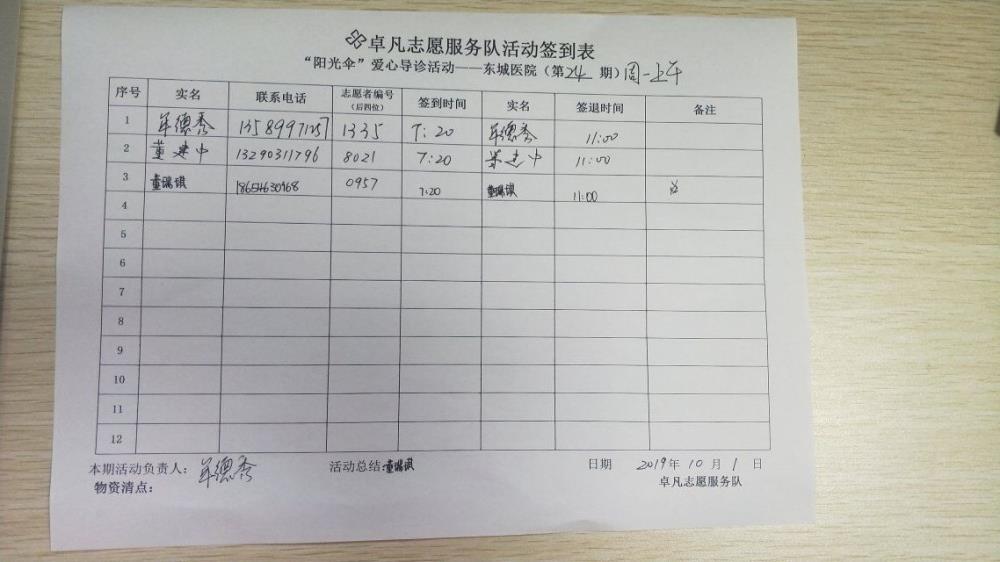 卓凡志愿服务队活动签到表
“阳光伞”爱心导诊活动——东城医院（第24期）周一上午
序号 实名 联系电话 志愿者编号（后四位） 签到时间 实名 签退时间 备注
1 牟德秀 1335 7:20 牟德秀 11:00
2 董建中 13290311796 8021 7:20 董建中 11:00
3 0957 7:20 11:00
4
5
6
7
8
9
10
11
12
本期活动负责人：牟德秀 活动总结: 日期 2019年10月1日
物资清点： 卓凡志愿服务队